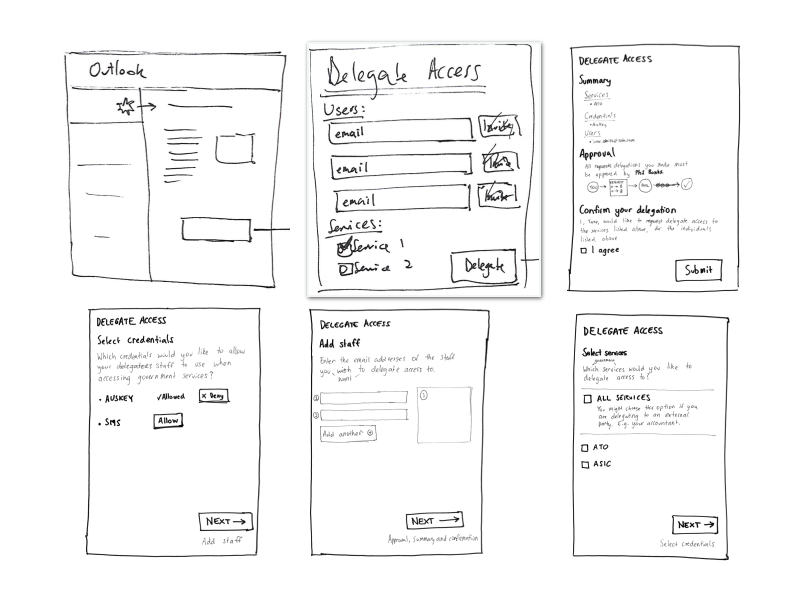 Outlook
Delegate Access
Users:
email
email
email
Services:
Service 1
Service 2
Delegate
DELEGATE ACCESS
Summary
Services
• ATO
Credentials
• Auskey
Users
Approval
All delegations you make must
be approved by Phil Books.
YOU
PHIL
Confirm your delegation
I, Yane, would like to request delegate access to
the services listed above, for the individuals
listed above
I agree
Submit
DELEGATE ACCESS
Select credentials
Which credentials would you like to allow
your delegatees staff to use when
accessing government services?
• AUSKEY ✓Allowed × Deny
• SMS Allow
NEXT →
Add staff
DELEGATE ACCESS
Add staff
Enter the email addresses of the staff
you wish to delegate access to.
want
①
②
①
Add another ⊕
NEXT →
Approval, Summary and confirmation
DELEGATE ACCESS
Select services
government
Which services would you like to
delegate access to?
ALL SERVICES
You might choose this option if you
are delegating to an external
party. E.g. your accountant.
ATO
ASIC
NEXT →
Select credentials